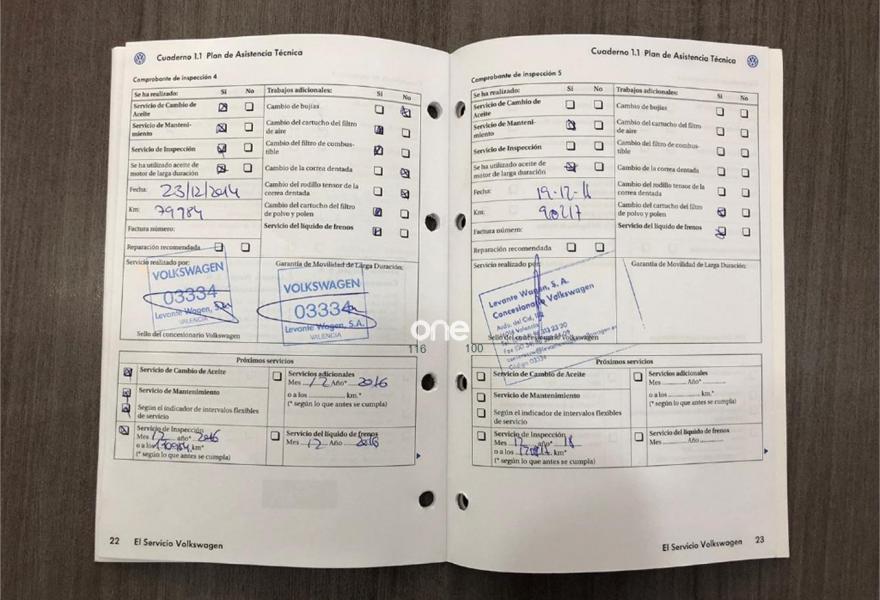 Cuaderno 1.1 Plan de Asistencia Técnica
Comprobante de inspección 4
Se ha realizado: Sí No
Servicio de Cambio de
Aceite
Servicio de Manteni-
miento
Servicio de Inspección
Se ha utilizado aceite de
motor de larga duración
Fecha: 23/12/2014
Km: 79984
Factura número:
Reparación recomendada
Trabajos adicionales: Sí No
Cambio de bujías
Cambio del cartucho del filtro
de aire
Cambio del filtro de combus-
tible
Cambio de la correa dentada
Cambio del rodillo tensor de la
correa dentada
Cambio del cartucho del filtro
de polvo y polen
Servicio del líquido de frenos
Servicio realizado por:
VOLKSWAGEN
03334
Levante Wagen, S.A.
VALENCIA
Sello del concesionario Volkswagen
Garantía de Movilidad de Larga Duración:
VOLKSWAGEN
03334
Levante Wagen, S.A.
VALENCIA
Próximos servicios
Servicio de Cambio de Aceite
Servicio de Mantenimiento
Según el indicador de intervalos flexibles
de servicio
Servicio de Inspección
Mes 12 año* 2016
o a los km*
(* según lo que antes se cumpla)
Servicios adicionales
Mes 12 Año* 2016
o a los km.*
(* según lo que antes se cumpla)
Servicio del líquido de frenos
Mes 12 Año 2016
22 El Servicio Volkswagen
Cuaderno 1.1 Plan de Asistencia Técnica
Comprobante de inspección 5
Se ha realizado: Sí No
Servicio de Cambio de
Aceite
Servicio de Manteni-
miento
Servicio de Inspección
Se ha utilizado aceite de
motor de larga duración
Fecha: 19-12-
Km: 90217
Factura número:
Reparación recomendada
Trabajos adicionales: Sí No
Cambio de bujías
Cambio del cartucho del filtro
de aire
Cambio del filtro de combus-
tible
Cambio de la correa dentada
Cambio del rodillo tensor de la
correa dentada
Cambio del cartucho del filtro
de polvo y polen
Servicio del líquido de frenos
Servicio realizado por:
Levante Wagen, S. A.
Concesionario Volkswagen
Avda. del Cid,
Valencia
Código 03334
Sello del concesionario Volkswagen
Garantía de Movilidad de Larga Duración:
one
116 100
Próximos servicios
Servicio de Cambio de Aceite
Servicio de Mantenimiento
Según el indicador de intervalos flexibles
de servicio
Servicio de Inspección
Mes 12 año* 18
o a los km*
(* según lo que antes se cumpla)
Servicios adicionales
Mes Año*
o a los km.*
(* según lo que antes se cumpla)
Servicio del líquido de frenos
Mes Año
El Servicio Volkswagen 23